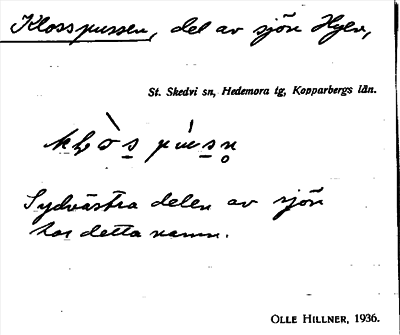 Klosspussen, del av sjön Hyen,
St. Skedvi sn, Hedemora tg, Kopparbergs län.
Sydvästra delen av sjön
har detta namn.
OLLE HILLNER, 1936.